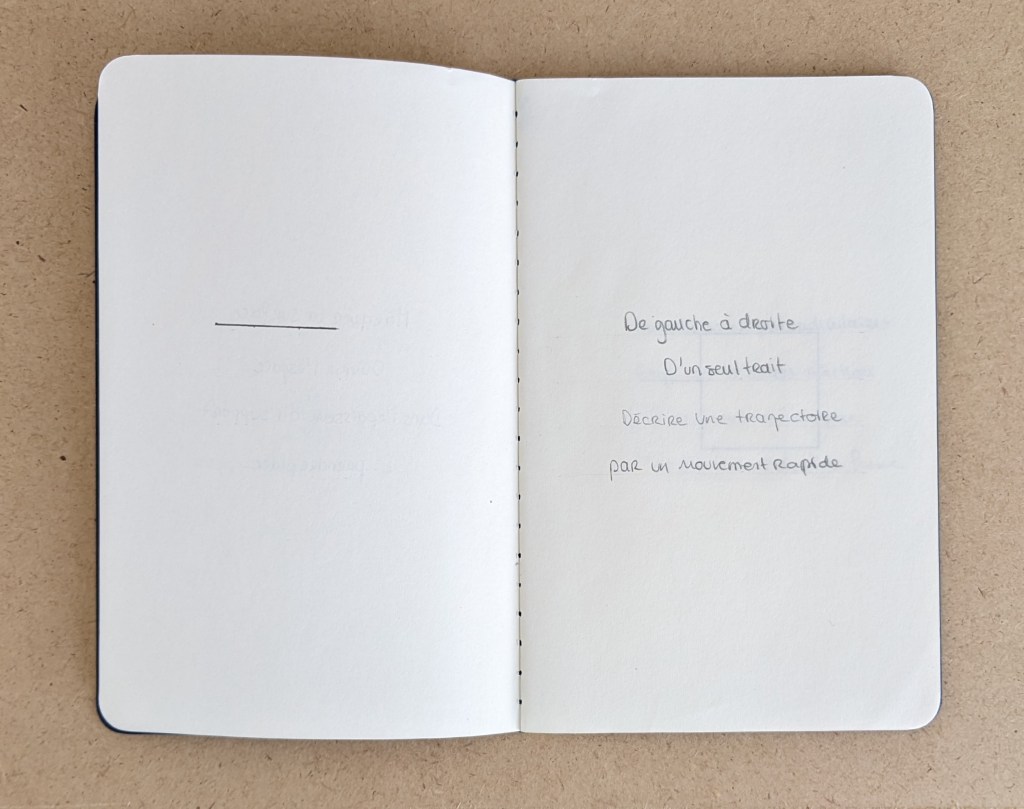 De gauche à droite
D'un seul trait
Décrire une trajectoire
par un mouvement rapide